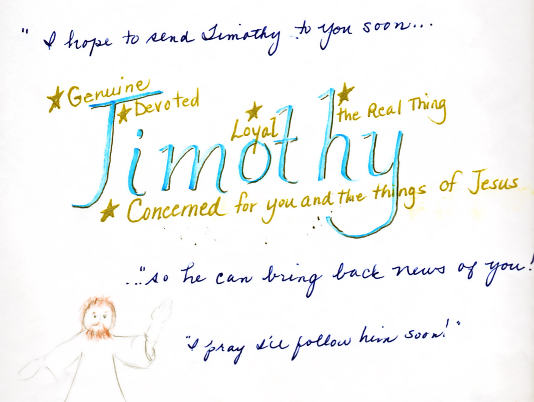 " I hope to send Timothy to you soon...
★ Genuine
★ Devoted
★ Loyal
★ the Real Thing
Timothy
★ Concerned for you and the things of Jesus
..."so he can bring back news of you!
"I pray I'll follow him soon!"